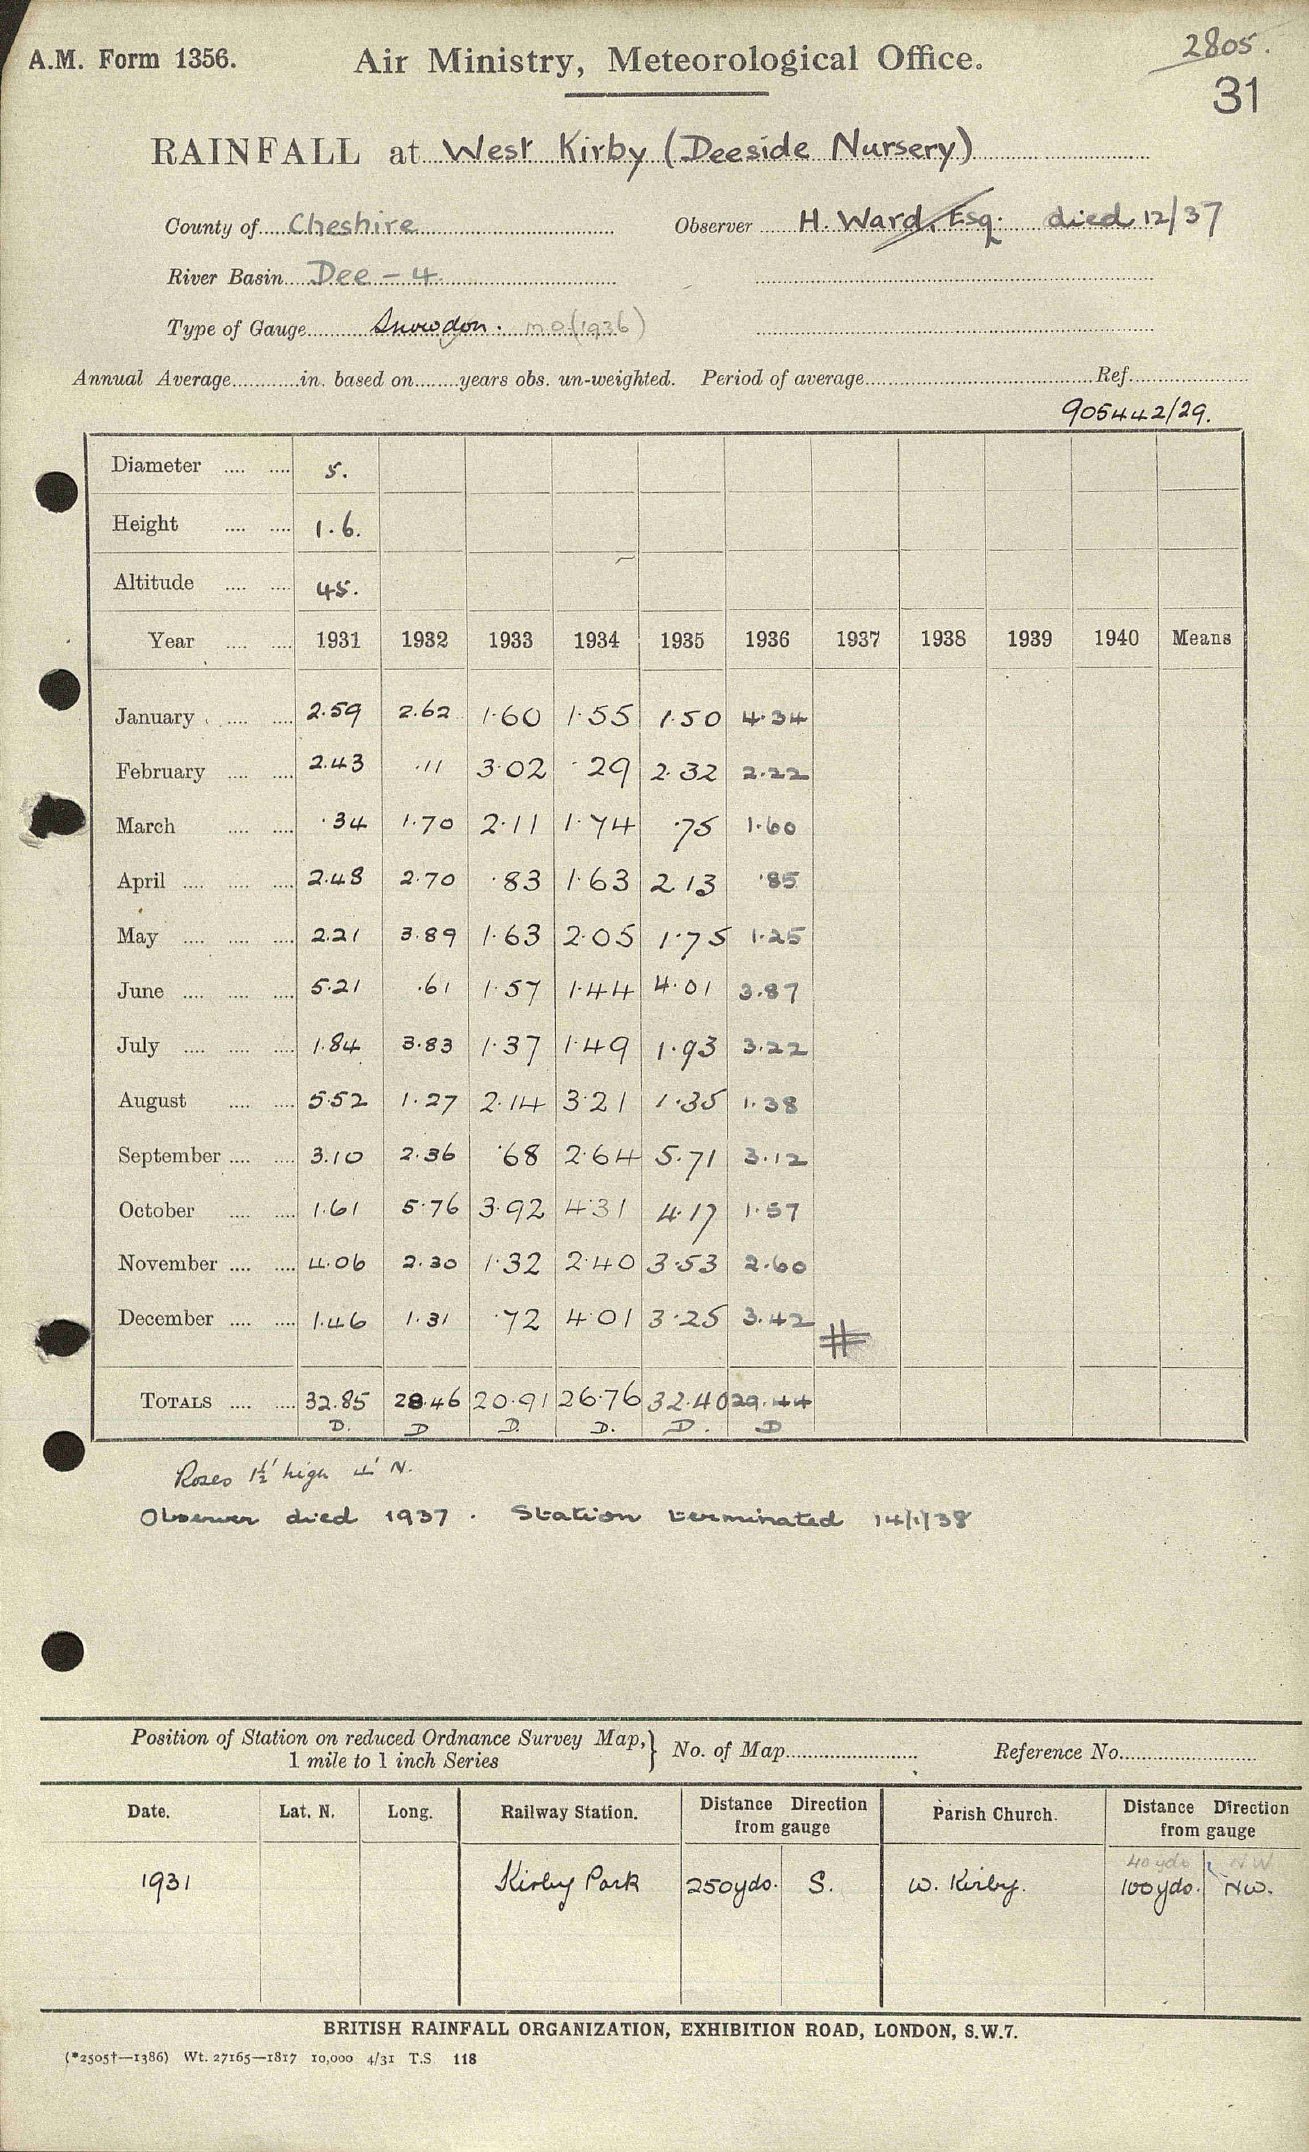 2805.
A.M. Form 1356. Air Ministry, Meteorological Office.
31
RAINFALL at West Kirby (Deeside Nursery)
County of Cheshire Observer H. Ward, Esq. died 12/37
River Basin Dee – 4
Type of Gauge Snowdon. (1936)
Annual Average in. based on years obs. un-weighted. Period of average Ref.
905442/29.
Diameter .... .... 5.
Height .... .... 1.6.
Altitude .... .... 45.
Year .... .... 1931 1932 1933 1934 1935 1936 1937 1938 1939 1940 Means
January .... .... 2.59 2.62 1.60 1.55 1.50 4.34
February .... .... 2.43 .11 3.02 .29 2.32 2.22
March .... .... .34 1.70 2.11 1.74 .75 1.60
April .... .... .... 2.48 2.70 .83 1.63 2.13 .85
May .... .... .... 2.21 3.89 1.63 2.05 1.75 1.25
June .... .... .... 5.21 .61 1.57 1.44 4.01 3.87
July .... .... .... 1.84 3.83 1.37 1.49 1.93 3.22
August .... .... 5.52 1.27 2.14 3.21 1.35 1.38
September .... .... 3.10 2.36 .68 2.64 5.71 3.12
October .... .... 1.61 5.76 3.92 4.31 4.17 1.57
November .... .... 4.06 2.30 1.32 2.40 3.53 2.60
December .... .... 1.46 1.31 .72 4.01 3.25 3.42 #
TOTALS .... .... 32.85 28.46 20.91 26.76 32.40 29.44
D. D D. D. D. D
Roses 1½' high 4' N.
Observer died 1937. Station terminated 14/1/38
Position of Station on reduced Ordnance Survey Map, 1 mile to 1 inch Series } No. of Map Reference No.
Date. Lat. N. Long. Railway Station. Distance Direction from gauge Parish Church. Distance Direction from gauge
40 yds NW
1931 Kirby Park 250yds. S. W. Kirby. 100yds. NW.
BRITISH RAINFALL ORGANIZATION, EXHIBITION ROAD, LONDON, S.W.7.
(*2505†—1386) Wt. 27165—1817 10,000 4/31 T.S 118